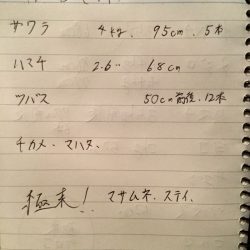 サワラ 4kg、95cm、5本
ハマチ 2.6〃 68cm
ツバス 50cm前後、12本
チカメ、マハタ、
極末! マサムネ、ステイ、